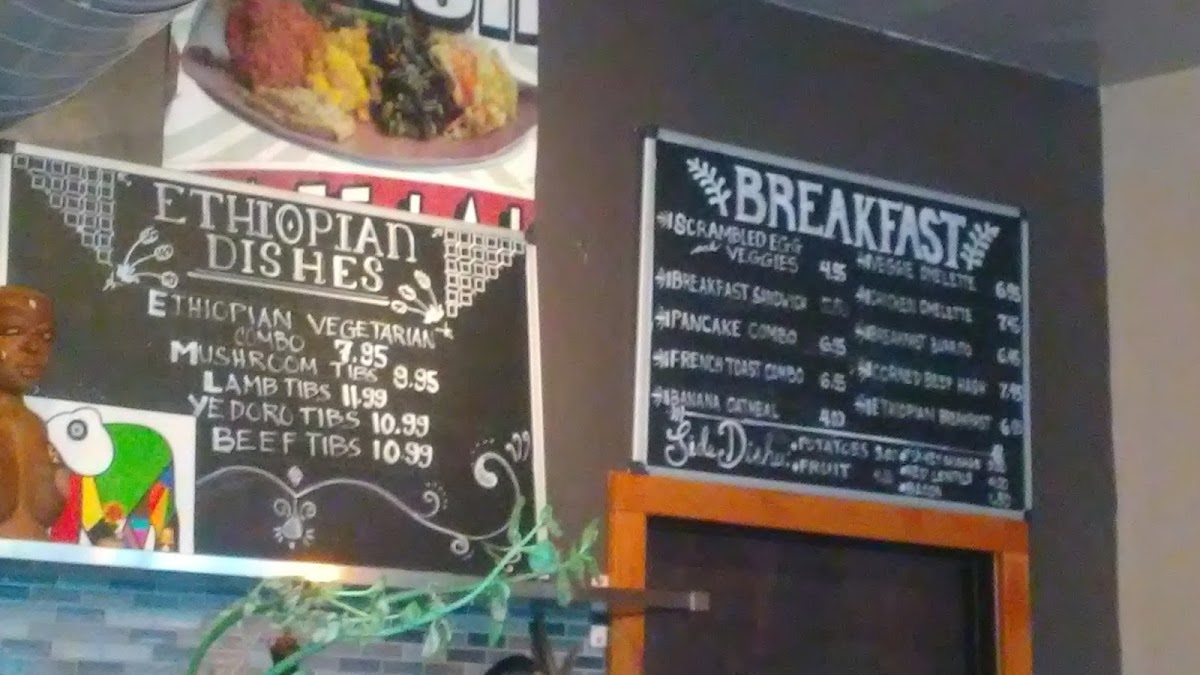 ETHIOPIAN
DISHES
ETHIOPIAN VEGETARIAN
COMBO 7.95
MUSHROOM TIBS 9.95
LAMB TIBS 11.99
YE DORO TIBS 10.99
BEEF TIBS 10.99
BREAKFAST
SCRAMBLED EGG
and VEGGIES 4.95
BREAKFAST SANDWICH
PANCAKE COMBO 6.95
FRENCH TOAST COMBO 6.95
BANANA OATMEAL
VEGGIE OMELETTE 6.95
CHICKEN OMELETTE 7.95
BREAKFAST BURRITO 6.95
CORNED BEEF HASH 7.95
ETHIOPIAN BREAKFAST
Side Dishes
POTATOES
FRUIT
BACON